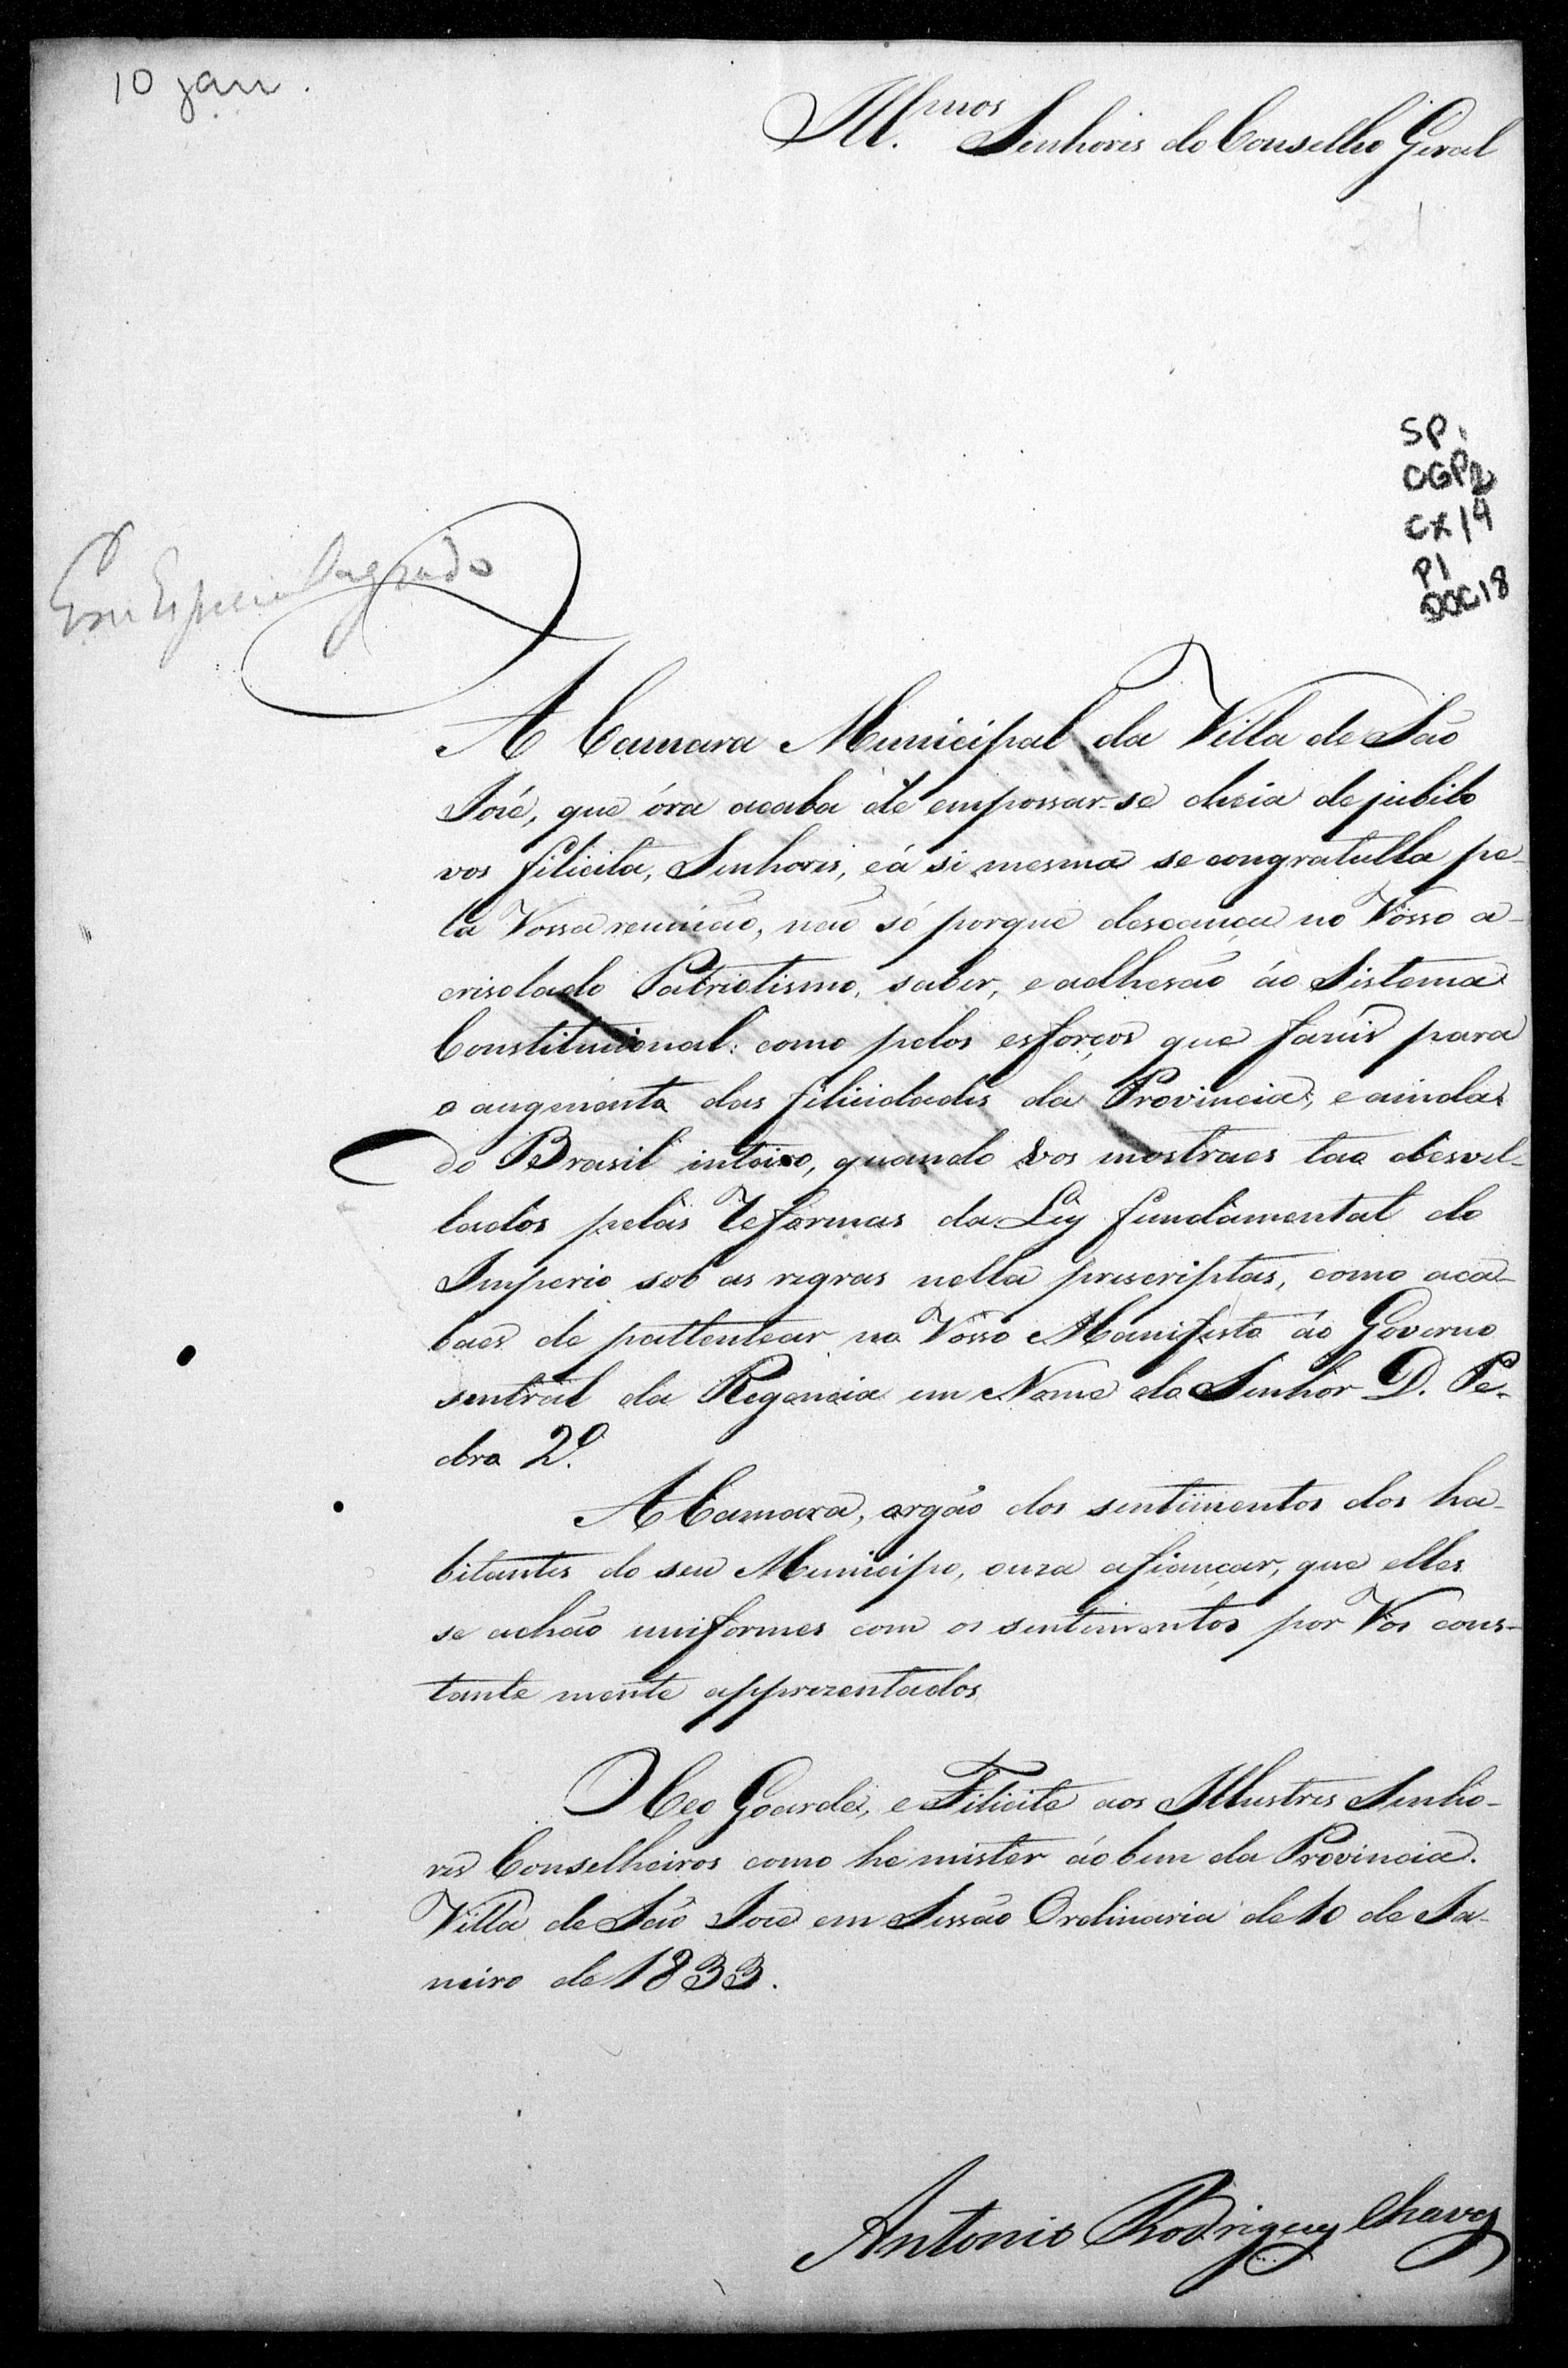 10 jan.
Ill.mos Senhores do Conselho Geral
SP.
CGP2
CX14
P1
DOC18
Com Especial Agrado
A Camara Municipal da Villa de São
José, que óra acaba de empossar-se cheia de jubilo
vos filicita, Senhoris, e á si mesma se congratulla pe-
la Vossa reunião, não só porque descança no Vosso a-
crisolado Patriotismo, saber, e adhesão áo Sistema
Constitucional: como pelos esforços que faris para
o augmento das filicidadis da Provincia, e ainda
do Brasil inteiro, quando vos mostraes tao desvel-
lados pelas Reformas da Ley fundamental do
Imperio sob as regras nella priscriptas, como aca-
baes de pattentear no Vosso Manifesto áo Governo
sentral da Regencia em Nome do Senhor D. Pe-
dro 2º.
A Camara, orgão dos sentimentos dos ha-
bitantes do seu Municipo, ouza afiançar, que elles
se achão uniformes com os sentimentos por Vós cons-
tante mente apprezentados
Deo Goarde, e Filicite aos Illustres Senho-
res Conselheiros como he mister áo bem da Provincia.
Villa de São José em Sessão Ordinaria de 10 de Ja-
neiro de 1833.
Antonio Rodrigues Chaves